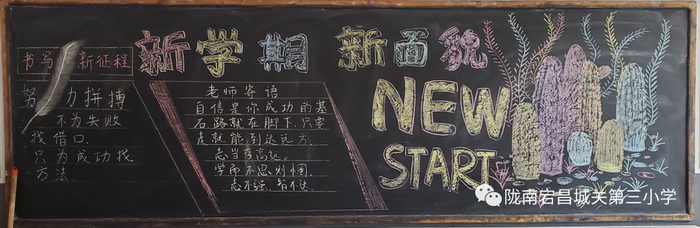 新学期 新面貌
书写 新征程
努力拼搏
不为失败
找借口
只为成功找
方法.
老师寄语
自信是你成功的基
石,路就在脚下,只要
走就能到达远方.
志当存高远.
学而不思则惘
志不强,智不达.
NEW
START
陇南宕昌城关第三小学